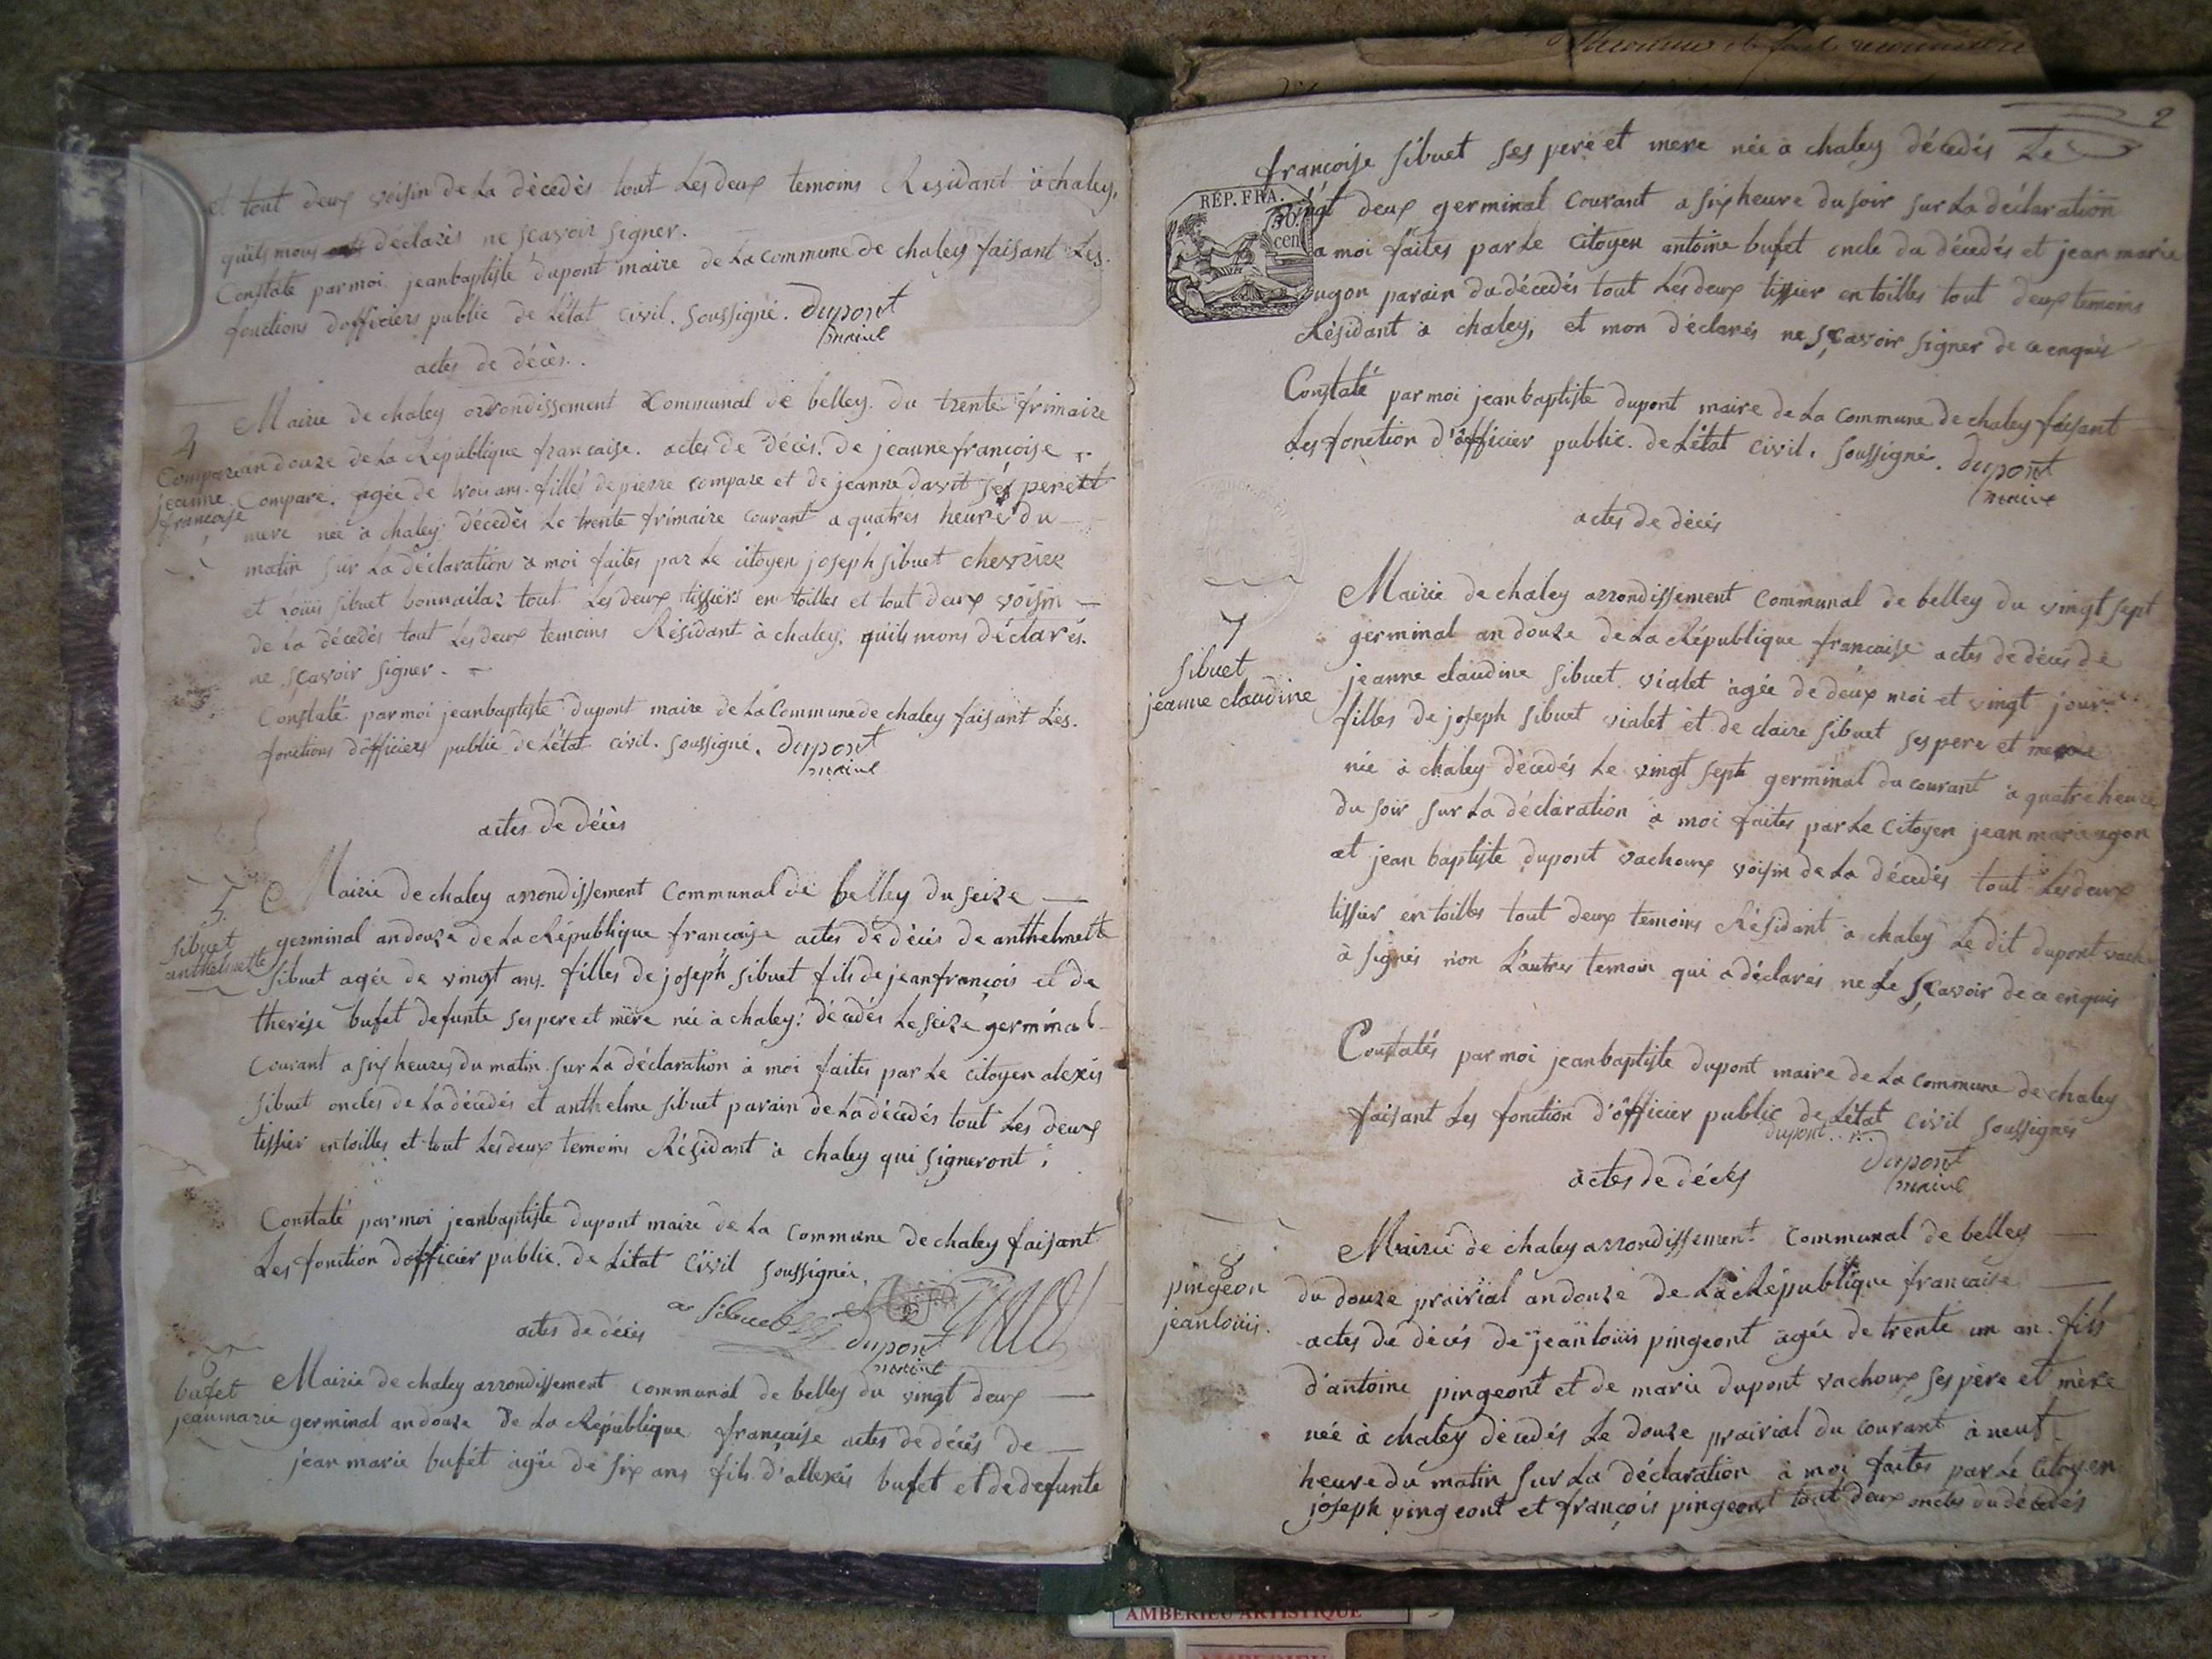 et tout deux voisin de La dècedès tout Les deux temoins Residant à chaley,
quils mons déclarès ne sçavoir signer.
Constaté par moi jeanbaptiste dupont maire de La commune de chaley faisant Les.
fonctions dofficiers public de L'état civil. soussigné. dupont
maire
actes de décès.
4
Compare
jeanne
françoise
Mairie de chaley arrondissement Communal de belley. du trente frimaire
an douze de La République francaise. actes de décès. de jeanne françoise
Compare. agée de trois ans. filles de pierre compare et de jeanne davit ses pere et
mere neé à chaley. décedès Le trente frimaire courant a quatres heures du
matin sur La déclaration à moi faites par Le citoyen joseph sibuet chevrier
et Loüis sibuet bonnailar tout Les deux tissiers en toilles et tout deux voisin
de La décedés tout Les deux temoins Résidant à chaley. quils mons déclarés.
ne sçavoir signer.
Constaté par moi jeanbaptiste dupont maire de La Commune de chaley faisant Les.
fonctions dofficiers public de L'état civil. soussigné. dupont
maire
actes de décès
5.
sibuet
anthelmette
Mairie de chaley arrondissement Communal de belley du seize
germinal an douze de La République française actes de décès de anthelmette
sibuet agée de vingt ans. filles de joseph sibuet fils de jean françois et de
therése bufet defunte ses pere et mère née à chaley: décedés Le seize germinal
Courant a six heures du matin sur La déclaration à moi faites par Le citoyen alexis
sibuet oncles de La décedés et anthelme sibuet parain de La décedés tout Les deux
tissier en toilles et tout Les deux temoins Résidant à chaley qui signeront.
Constaté par moi jeanbaptiste dupont maire de La Commune de chaley faisant
Les fonction dofficier public. de L'état Civil soussignée.
a sibuet
dupont
maire
actes de décès
6
bufet
jean marie
Mairie de chaley arrondissement communal de belley du vingt deux
germinal an douze de La République française actes de décés de
jean marie bufet agée de six ans fils d'allexis bufet et de defunte
2
françoise sibuet ses pere et mere née à chaley décedés Le
vingt deux germinal Courant a six heure du soir sur La déclaration
a moi faites par Le Citoyen antoine bufet oncle du décedés et jean marie
ugon parain du décedés tout Les deux tissier en toilles tout deux temoins
Résidant à chaley, et mon déclarés ne sçavoir signer de ce enquis
RÉP. FRA.
50.
cen
Constaté par moi jean baptiste dupont maire de La Commune de chaley faisant
Les fonction d'officier public. de L'état Civil. soussigné. dupont
maire
actes de décés
7
sibuet
jeanne claudine
Mairie de chaley arrondissement Communal de belley du vingt sept
germinal an douze de La République francaise actes de décès de
jeanne claudine sibuet vialet agée de deux moi et vingt jour.
filles de joseph sibuet vialet et de claire sibuet ses pere et mere
née à chaley décedés Le vingt sept germinal du courant à quatre heure
du soir sur La déclaration à moi faites par Le Citoyen jean marie ugon
et jean baptiste dupont vachoux voisin de La décedés tout Les deux
tissier en toilles tout deux temoins Résidant à chaley Le dit dupont vach
à signés non L'autres temoin qui a déclarés ne Le sçavoir de ce enquis
Constatés par moi jeanbaptiste dupont maire de La Commune de chaley
faisant Les fonction d'officier public de L'état Civil soussignés
dupont
dupont
maire
actes de décés
8
pingeon
jean loüis.
Mairie de chaley arrondissement Communal de belley
du douze prairial an douze de La République francaise
actes de décés de jean loüis pingeont agée de trente un an. fils
d'antoine pingeont et de marie dupont vachoux ses père et mère
née à chaley décedés Le douze prairial du courant à neuf
heure du matin sur La déclaration à moi faites par Le Citoyen
joseph pingeont et françois pingeont tout deux oncles du décedés
AMBERIEU ARTISTIQUE
AMBERIEU